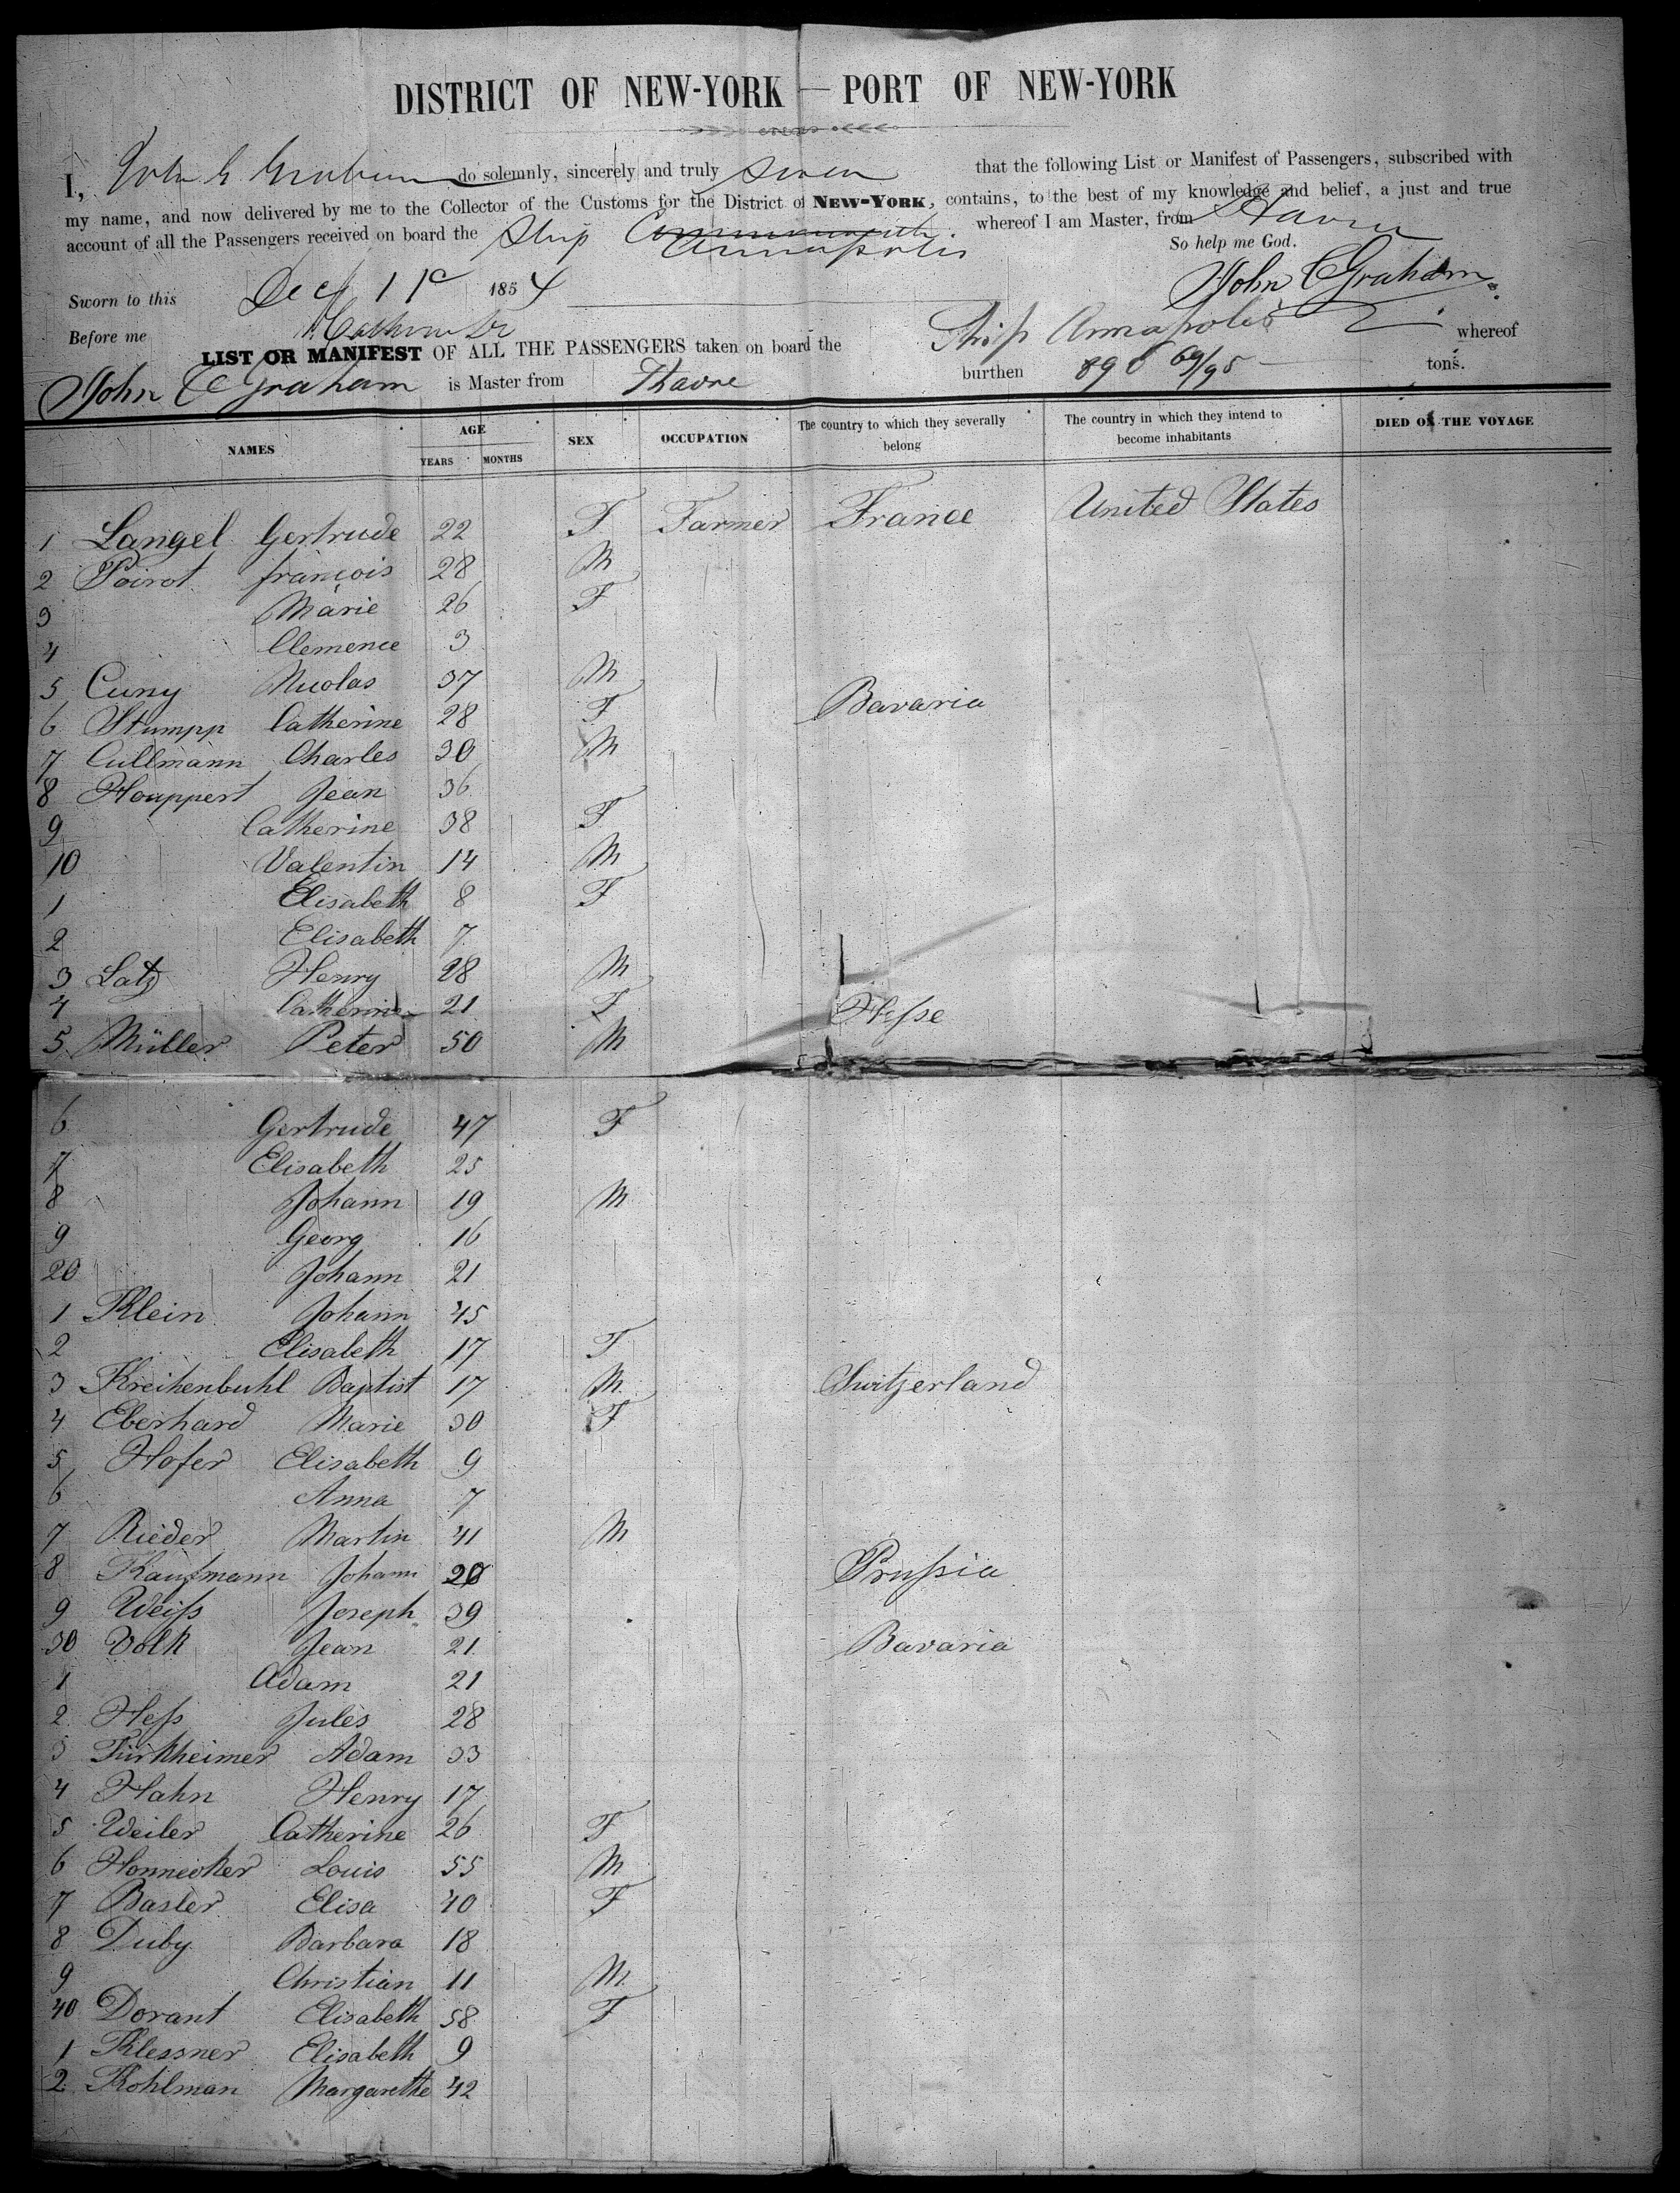 DISTRICT OF NEW-YORK — PORT OF NEW-YORK
I, John G Graham do solemnly, sincerely and truly swear that the following List or Manifest of Passengers, subscribed with
my name, and now delivered by me to the Collector of the Customs for the District of NEW-YORK, contains, to the best of my knowledge and belief, a just and true
account of all the Passengers received on board the Ship Annapolis whereof I am Master, from Havre
So help me God.
Sworn to this Dec 1st 1854 John C Graham
Before me
LIST OR MANIFEST OF ALL THE PASSENGERS taken on board the Ship Annapolis whereof
John C Graham is Master from Havre burthen 89 69/95 tons.
NAMES AGE YEARS MONTHS SEX OCCUPATION The country to which they severally belong The country in which they intend to become inhabitants DIED ON THE VOYAGE
1 Langel Gertrude 22 F Farmer France United States
2 Poirot françois 28 M
3 Marie 26 F
4 Clemence 3
5 Cuny Nicolas 37 M
6 Stumpp Catherine 28 F Bavaria
7 Cullmann Charles 30 M
8 Houppert Jean 36
9 Catherine 38 F
10 Valentin 14 M
1 Elisabeth 8 F
2 Elisabeth 7
3 Latz Henry 28 M
4 Catherine 21 F Hesse
5 Müller Peter 50 M
6 Gertrude 47 F
7 Elisabeth 25
8 Johann 19 M
9 Georg 16
20 Johann 21
1 Klein Johann 45
2 Elisabeth 17 F
3 Kreihenbuhl Baptist 17 M Switzerland
4 Eberhard Marie 30 F
5 Hofer Elisabeth 9
6 Anna 7
7 Rieder Martin 41 M
8 Kaufmann Johann 20 Prussia
9 Weiss Joseph 39
30 Volk Jean 21 Bavaria
1 Adam 21
2 Hess Jules 28
3 Türkheimer Adam 33
4 Hahn Henry 17
5 Weiler Catherine 26 F
6 Honnecker Louis 55 M
7 Basler Elisa 40 F
8 Duby Barbara 18
9 Christian 11 M
40 Dorant Elisabeth 58 F
1 Klessner Elisabeth 9
2 Kohlman Margarethe 42